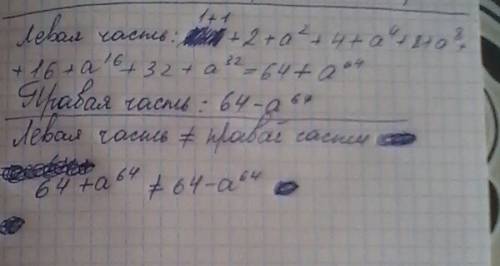 1+1
Левая часть: +2+a²+4+a⁴+8+a⁸+
+16+a¹⁶+32+a³²=64+a⁶⁴
Правая часть: 64-a⁶⁴
Левая часть ≠ правая части
64+a⁶⁴ ≠ 64-a⁶⁴